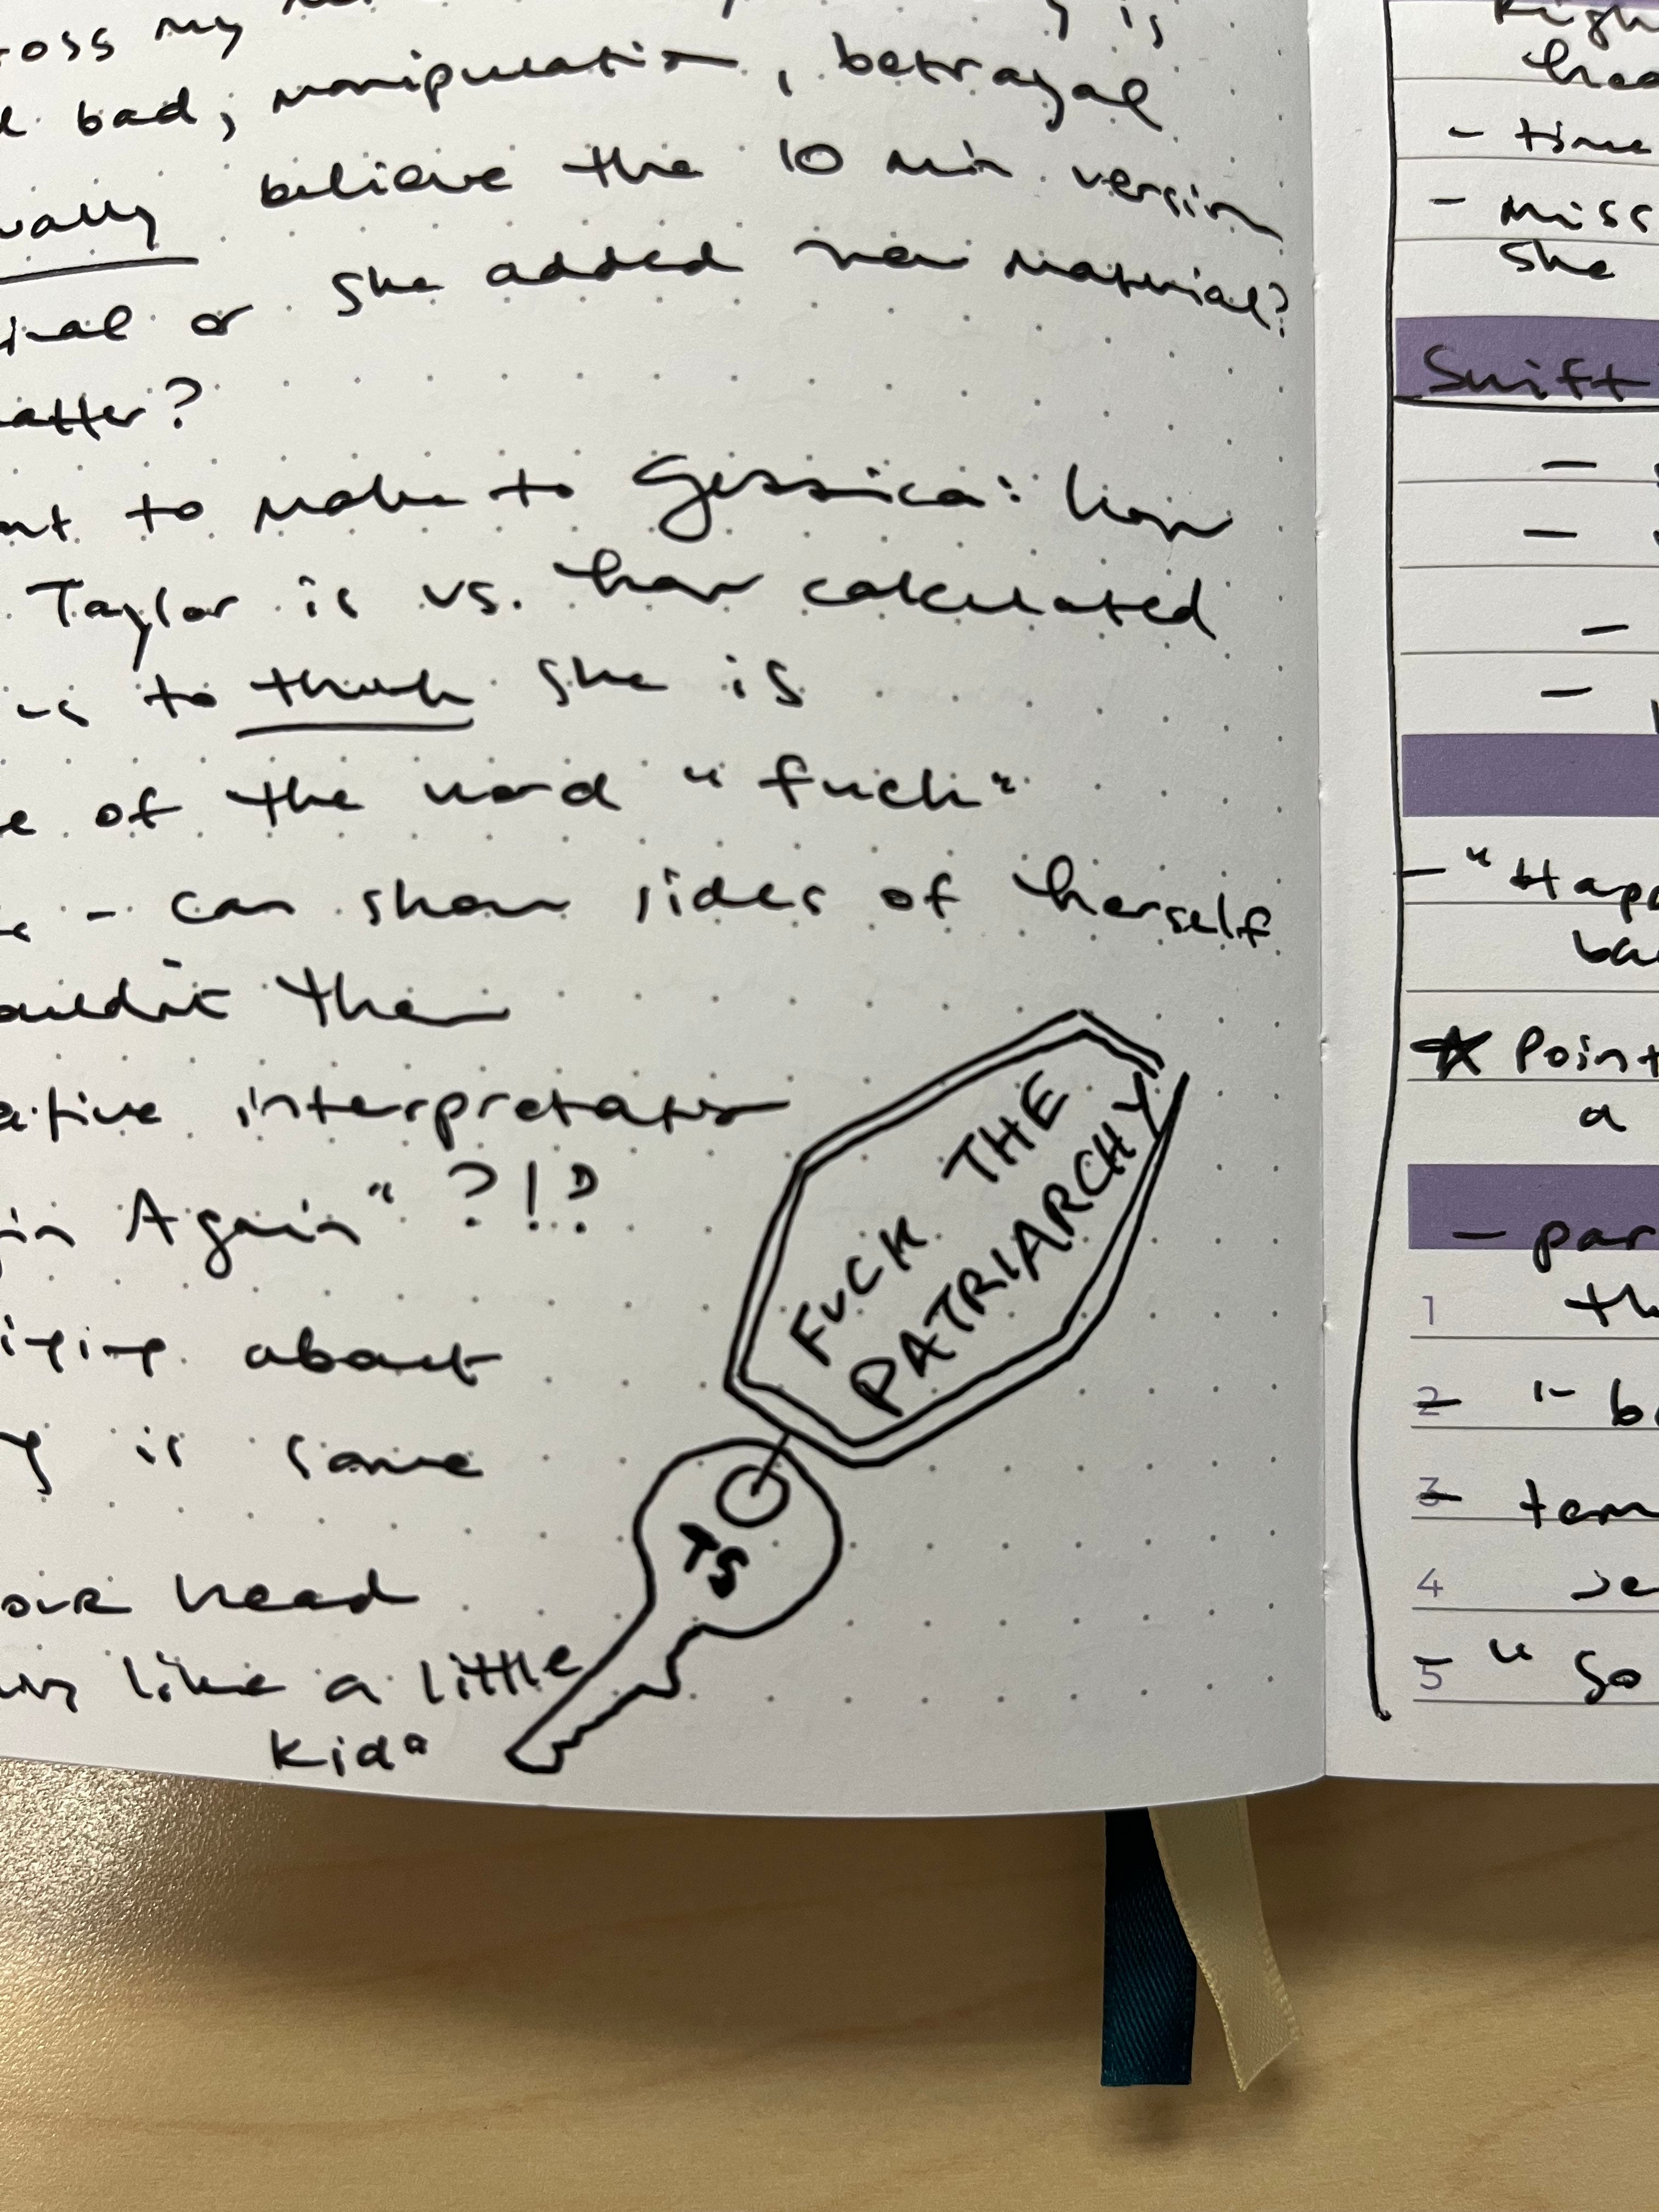 oss my is
bad, manipulation, betrayal
believe the 10 min version
or she added new material?
atter?
to make to Jessica: how
Taylor is vs. how calculated
us to think she is
of the word "fuck"
- can show sides of herself
ouldn't then
ative interpretation
in Again" ?!?
about
is same
head
like a little
kid"
FUCK THE
PATRIARCHY
TS
- time
- miss
she
Swift
-
-
-
-
- "Happ
ba
★ Point
a
- par
1 th
2 "- b
3 tem
4 se
5 " So